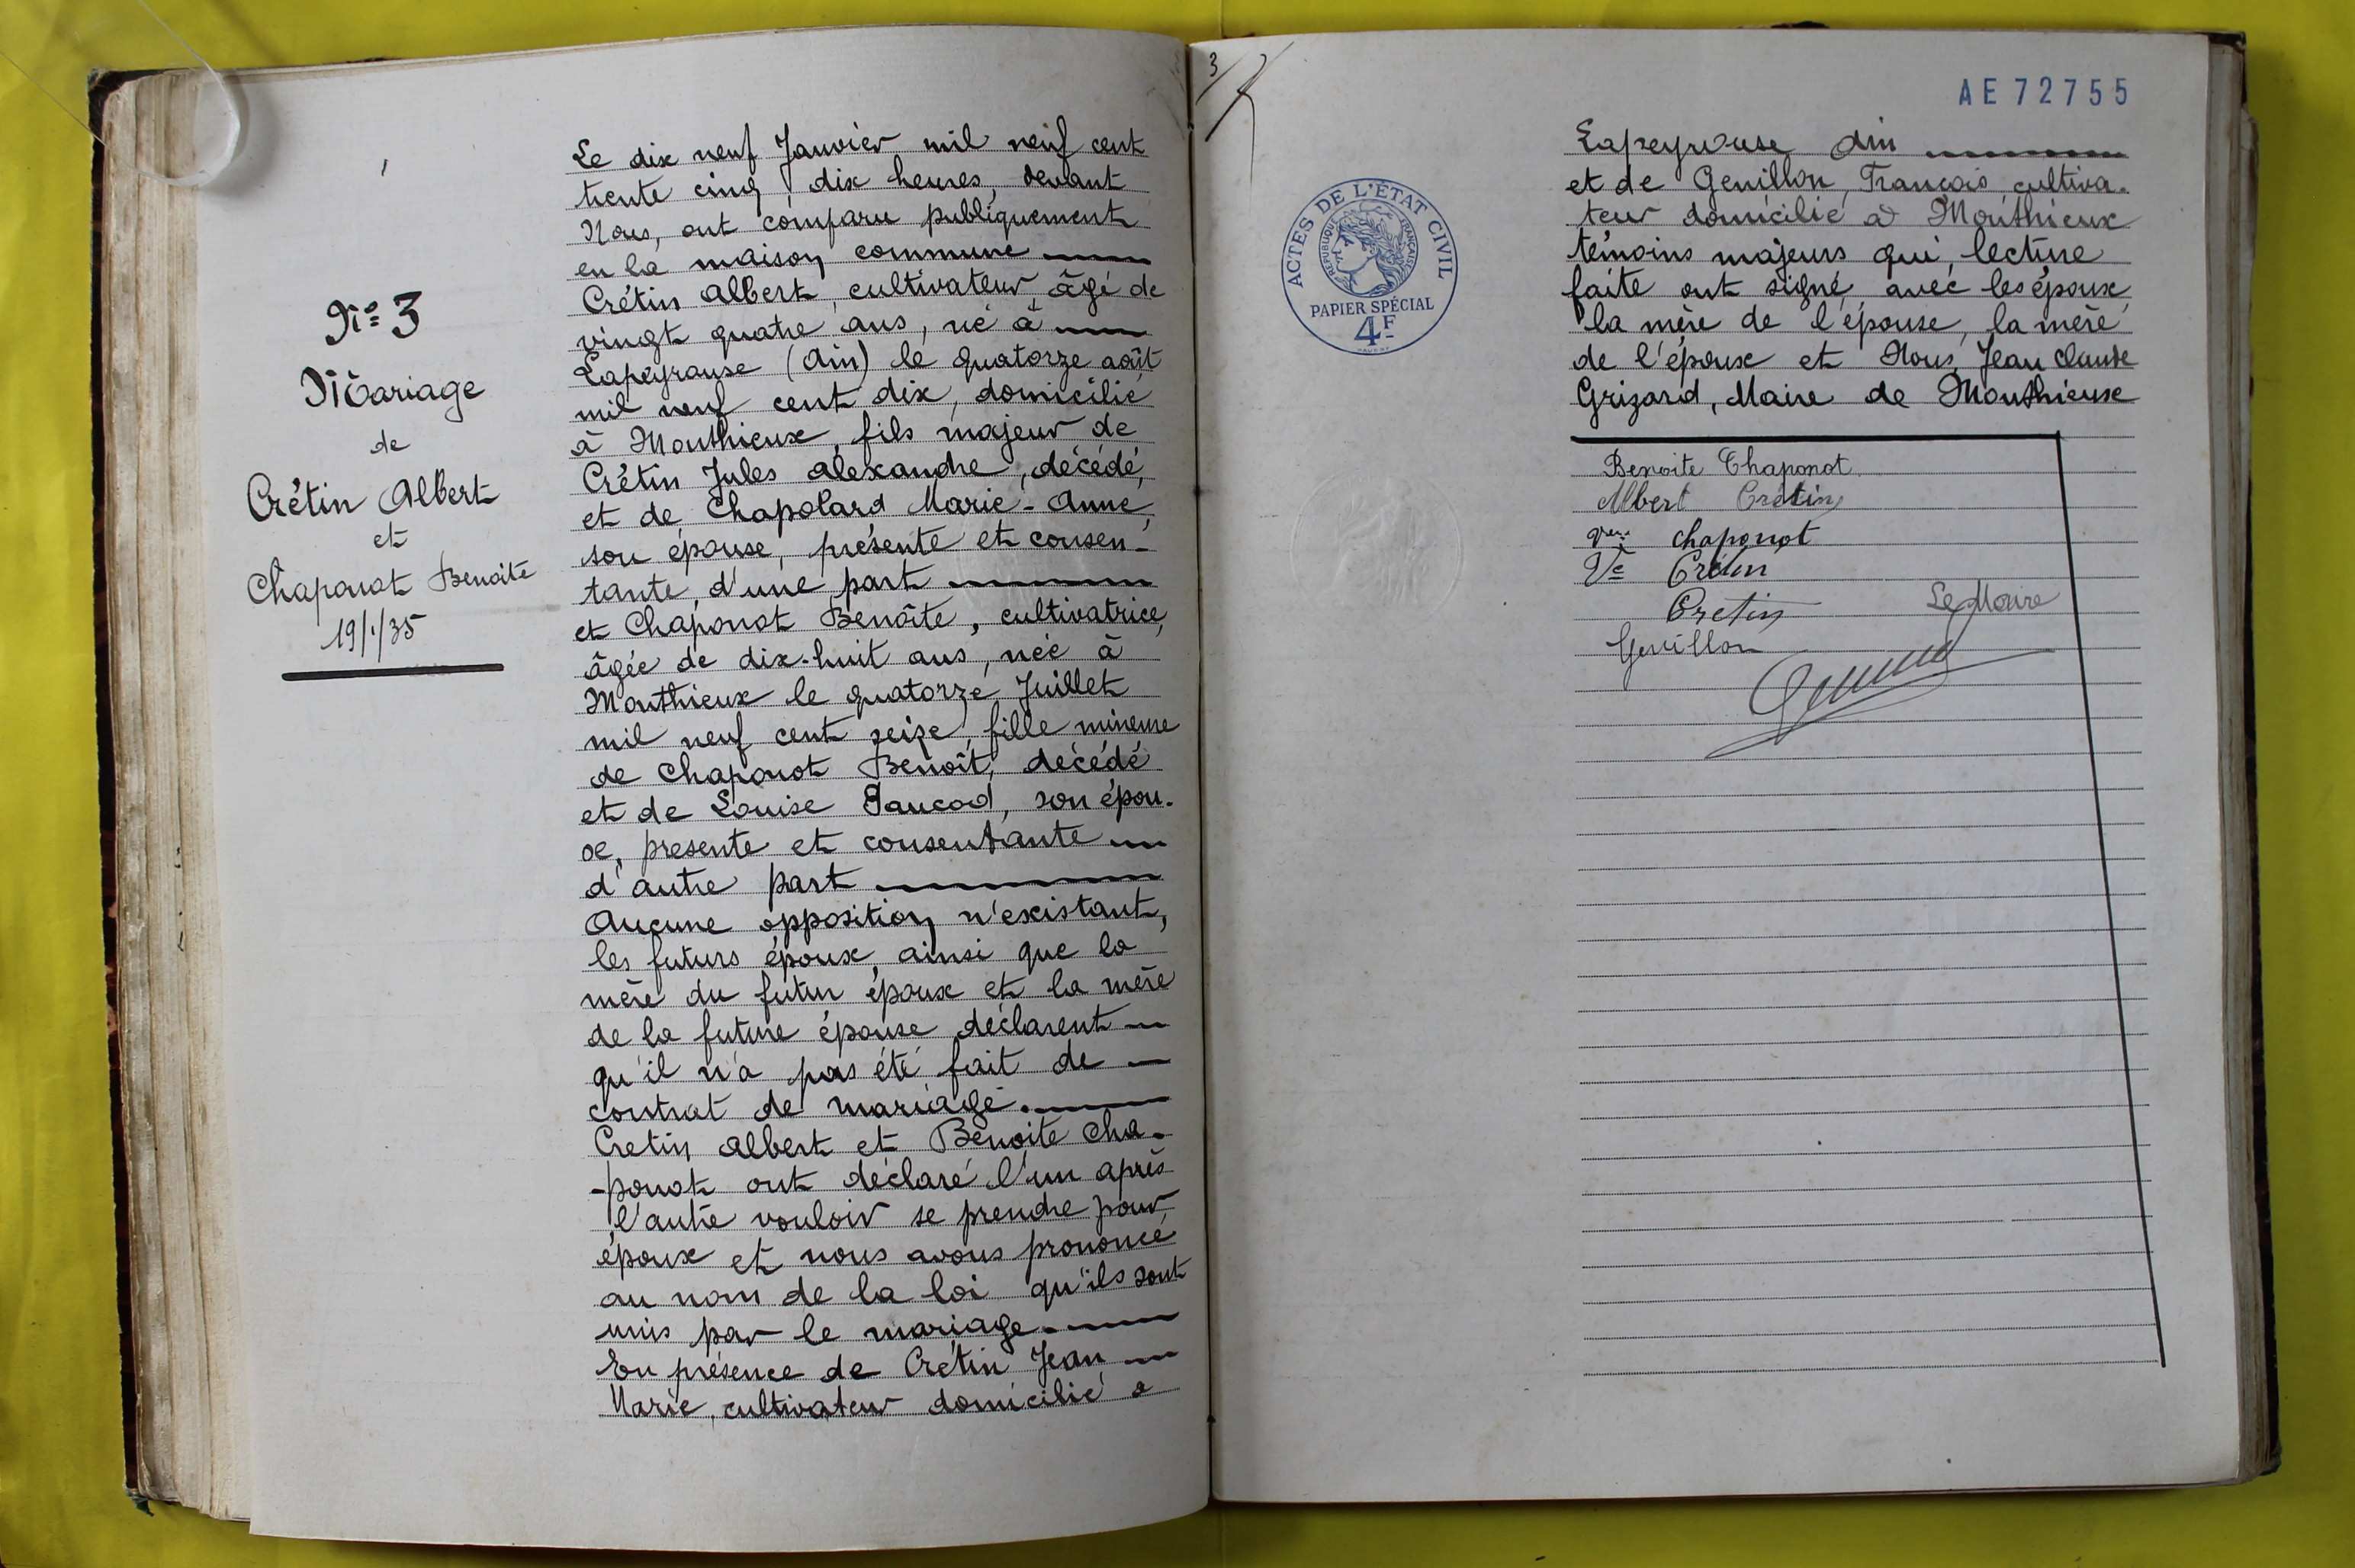 N° 3
Mariage
de
Crétin Albert
et
Chaponot Benoîte
19/1/35
Le dix neuf Janvier mil neuf cent
trente cinq, dix heures, devant
Nous, ont comparu publiquement
en la maison commune
Crétin Albert, cultivateur âgé de
vingt quatre ans, né à
Lapeyrouse (Ain) le quatorze août
mil neuf cent dix, domicilié
à Monthieux, fils majeur de
Crétin Jules Alexandre, décédé,
et de Chapolard Marie-Anne,
son épouse, présente et consen-
tante, d'une part
et Chaponot Benoîte, cultivatrice,
âgée de dix-huit ans, née à
Monthieux le quatorze Juillet
mil neuf cent seize, fille mineure
de Chaponot Benoît, décédé
et de Louise, son épou-
se, presente et consentante
d'autre part
Aucune opposition n'existant,
les futurs époux, ainsi que la
mère du futur époux et la mère
de la future épouse déclarent
qu'il n'a pas été fait de
contrat de mariage.
Cretin Albert et Benoite Cha-
-ponot ont déclaré l'un après
l'autre vouloir se prendre pour
époux et nous avons prononcé
au nom de la loi qu'ils sont
unis par le mariage.
En présence de Crétin Jean
Marie, cultivateur domicilié à
3
AE 72755
ACTES DE L'ÉTAT CIVIL
RÉPUBLIQUE FRANÇAISE
PAPIER SPÉCIAL
4F
Lapeyrouse Ain
et de Genillon, François cultiva-
teur domicilié à Monthieux
témoins majeurs qui, lecture
faite ont signé avec les époux,
la mère de l'épouse, la mère
de l'époux et Nous, Jean Claude
Grizard, Maire de Monthieux
Benoite Chaponot
Albert Crétin
Vve chaponot
Ve Crétin
Cretin
Le Maire
Genillon